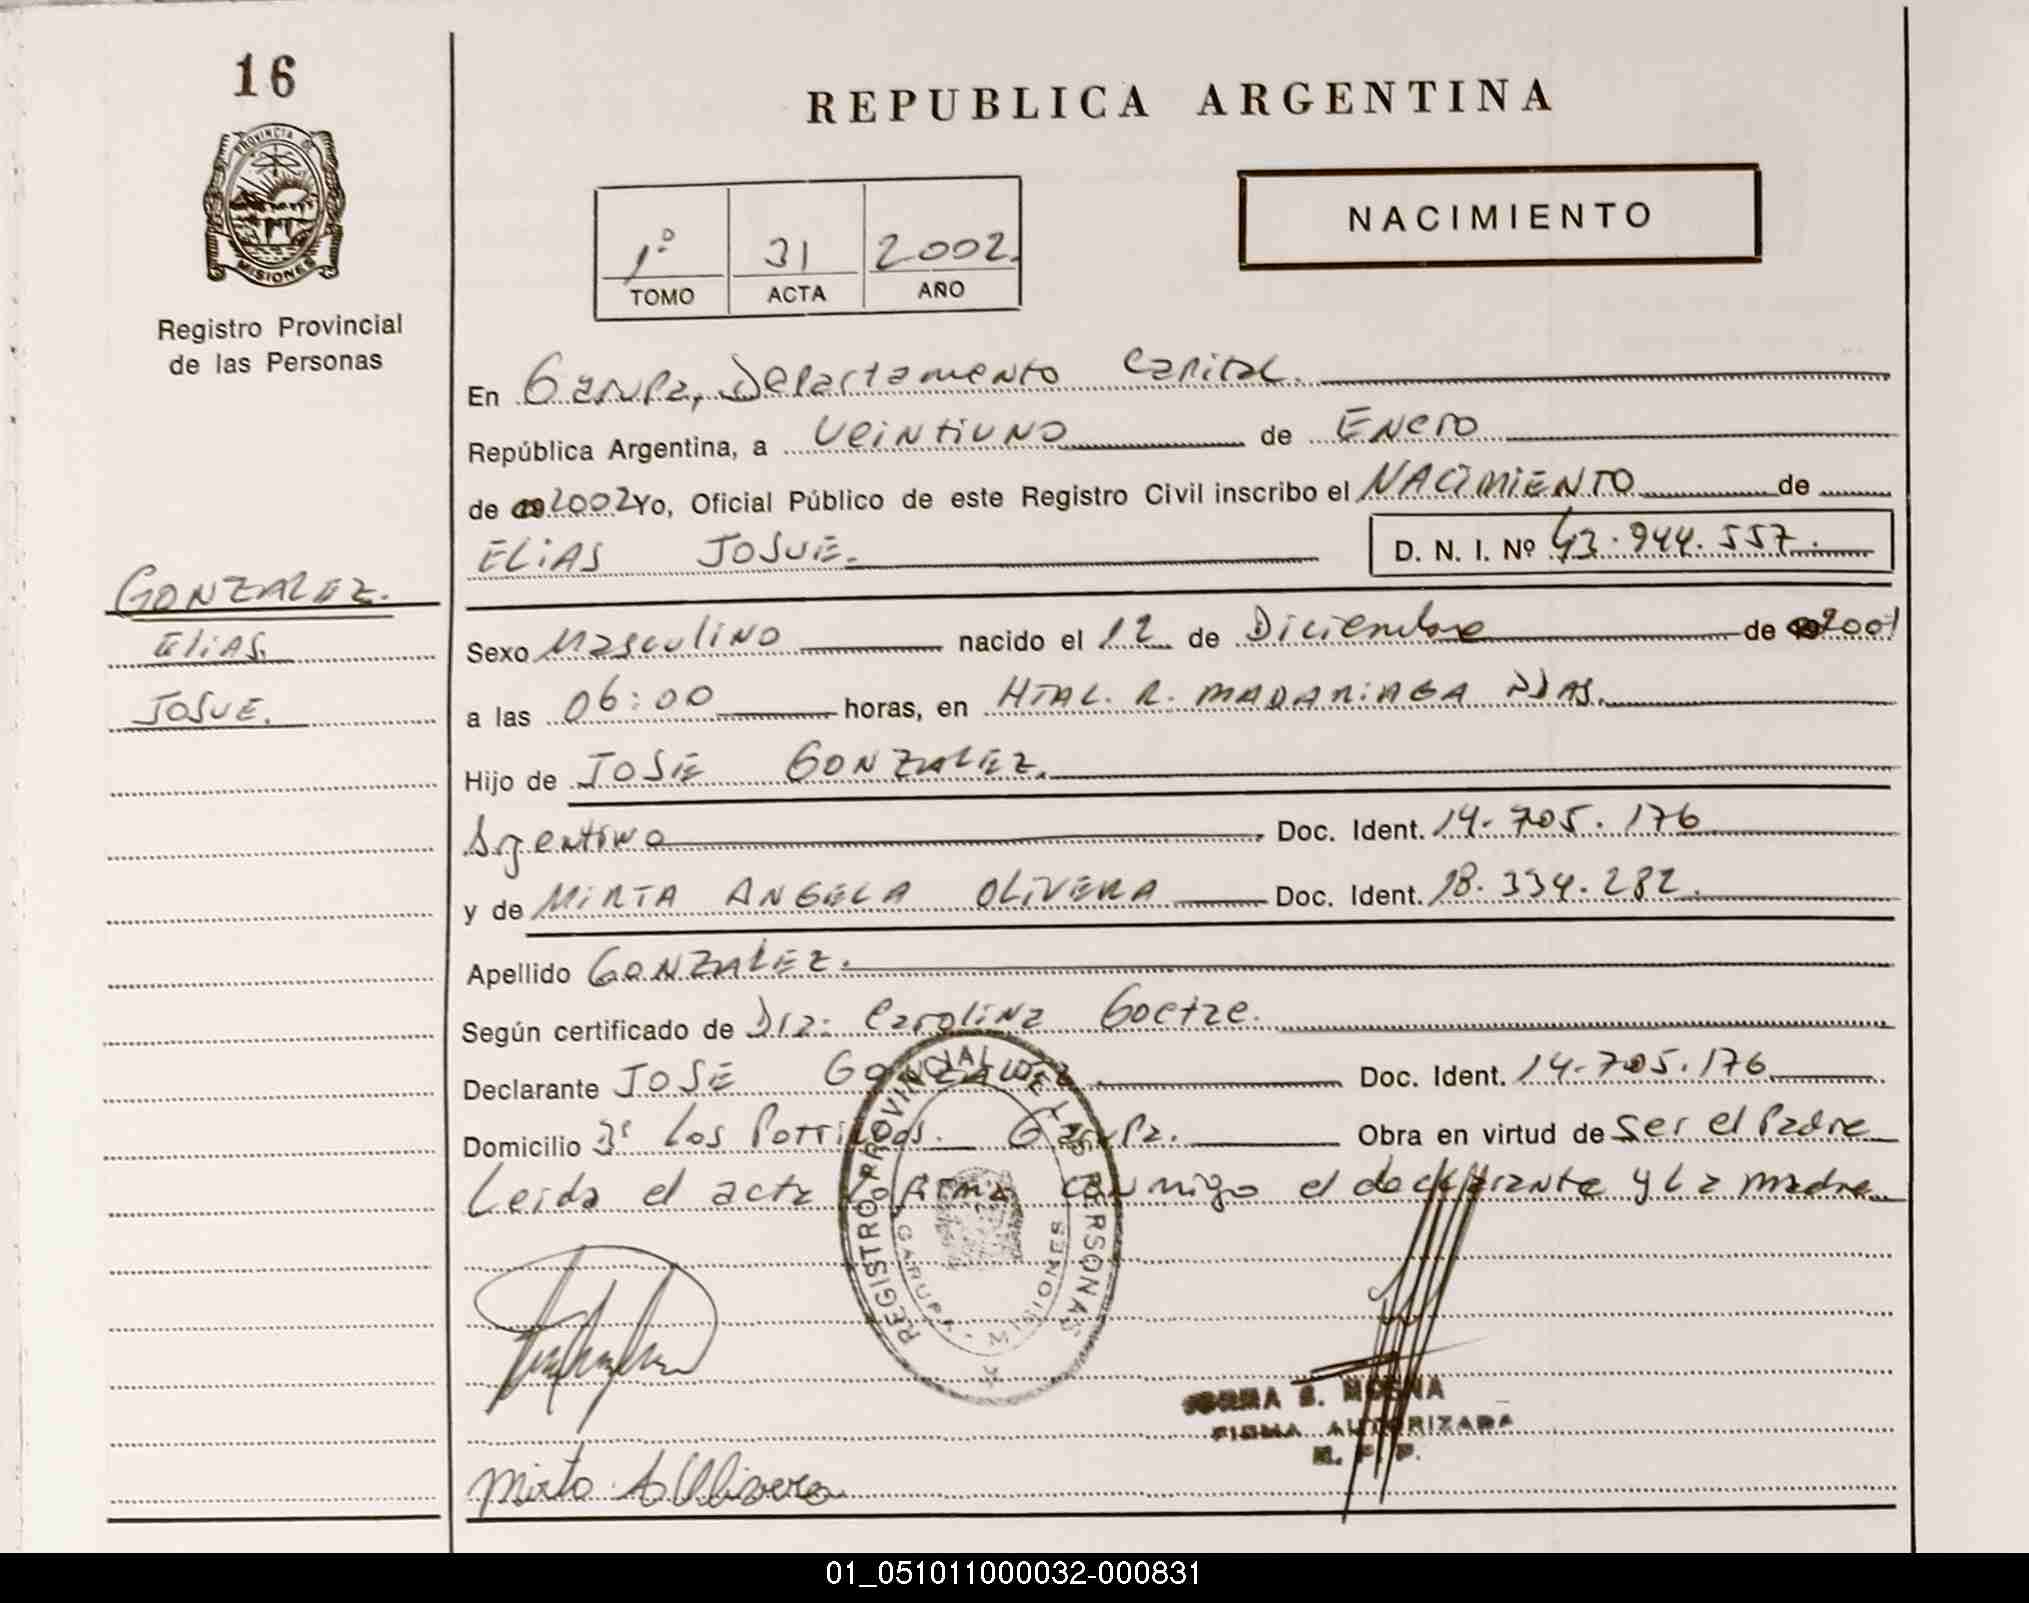 16
PROVINCIA DE
MISIONES
Registro Provincial
de las Personas
GONZALEZ.
ELiAS.
JOSUE.
REPUBLICA ARGENTINA
1º 31 2002.
TOMO ACTA AÑO
NACIMIENTO
En Garupa, Departamento Capital.
República Argentina, a Veintiuno de Enero
de 2002 Yo, Oficial Público de este Registro Civil inscribo el NACIMIENTO de
ELiAS JOSUE. D. N. I. Nº 43.944.557.
Sexo Masculino nacido el 12 de Diciembre de 2001
a las 06:00 horas, en HTAL. R. MADARIAGA PDAS.
Hijo de JOSE GONZALEZ.
Argentino Doc. Ident. 14.705.176
y de MIRTA ANGELA OLIVERA Doc. Ident. 18.334.282.
Apellido GONZALEZ.
Según certificado de Dra: Carolina Goetze.
Declarante JOSE GONZALEZ. Doc. Ident. 14.705.176
Domicilio Bº Los Potrillos. Garupa. Obra en virtud de Ser el Padre
Leida el acta firma conmigo el declarante y La madre
REGISTRO PROVINCIAL DE LAS PERSONAS
GARUPA - MISIONES
S. MOSNA
FIRMA AUTORIZADA
R. P. P.
Mirta A Olivera
01_051011000032-000831